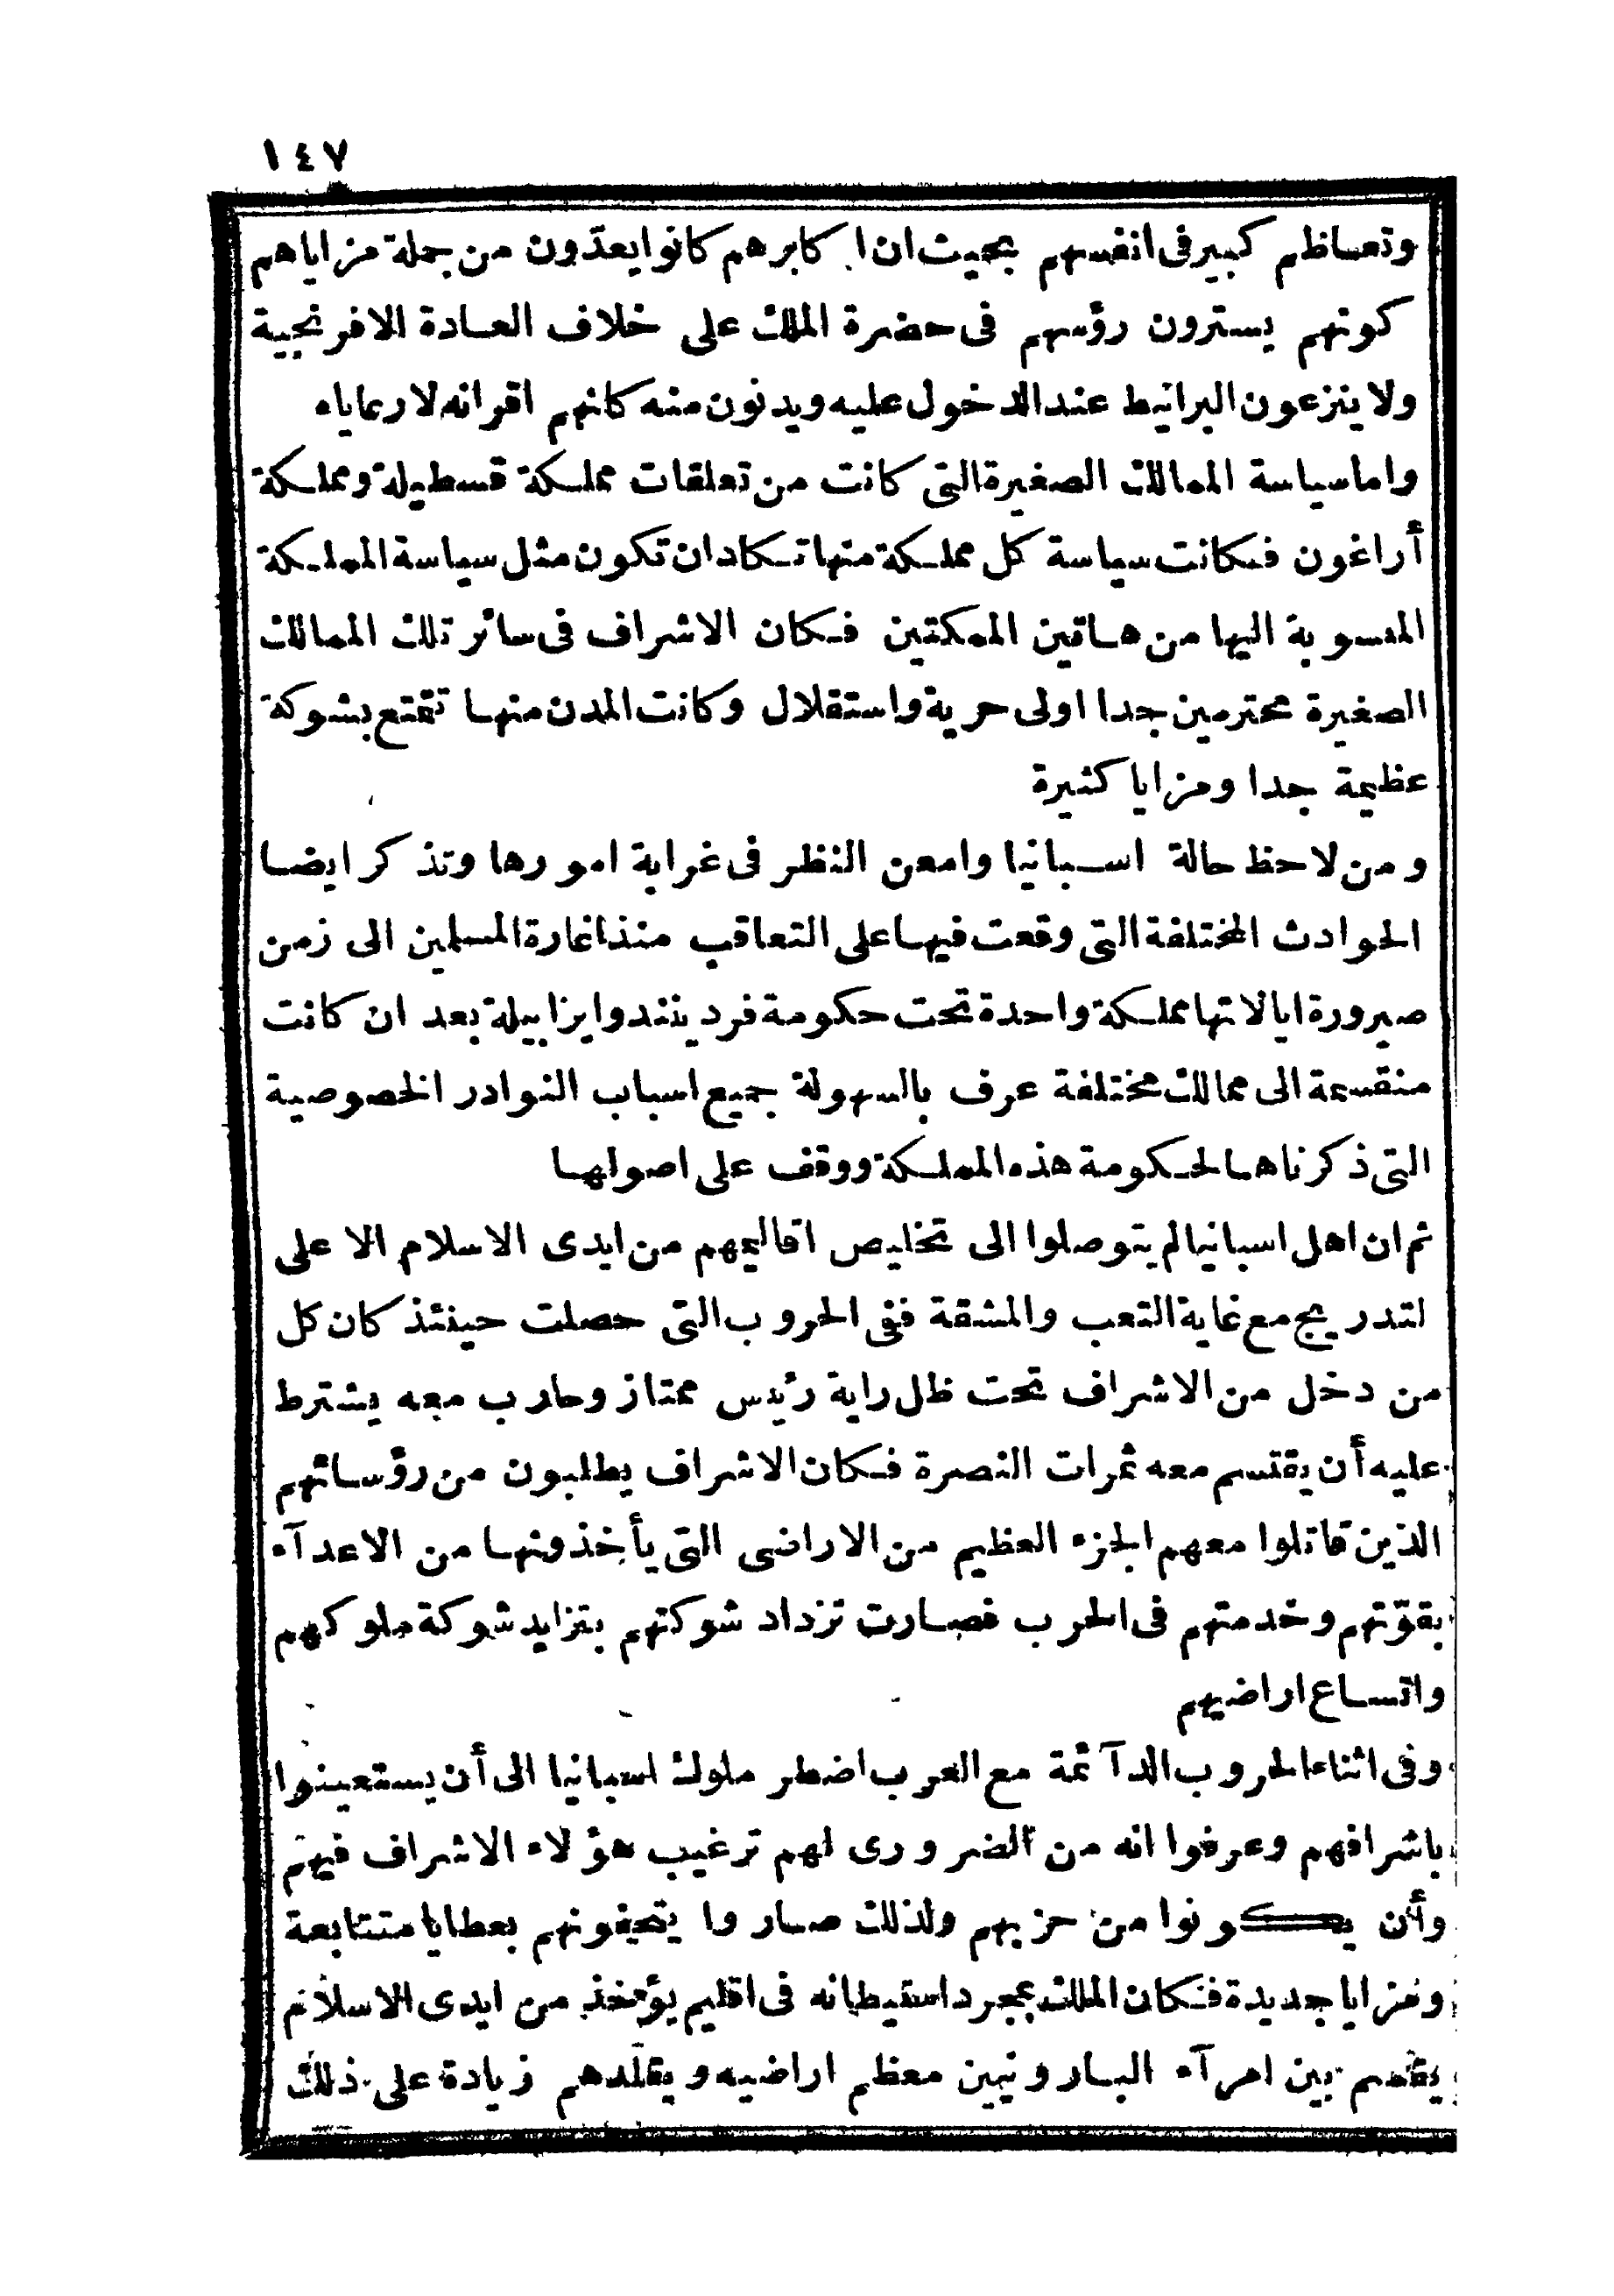 ١٤٧
وتعاظم كبير فى انفسهم بحيث ان اكابرهم كانوا يعدّون من جملة مزاياهم
كونهم يسترون رؤسهم فى حضرة الملك على خلاف العادة الافرنجية
ولا ينزعون البرانيط عند الدخول عليه ويدنون منه كانهم اقرانه لا رعاياه
واما سياسة الممالك الصغيرة التى كانت من تعلقات مملكة قسطيلة ومملكة
أراغون فكانت سياسة كل مملكة منها تكاد ان تكون مثل سياسة المملكة
المنسوبة اليها من هاتين الممكتين فكان الاشراف فى سائر تلك الممالك
الصغيرة محترمين جدا اولى حرية واستقلال وكانت المدن منها تتمتع بشوكة
عظيمة جدا ومزايا كثيرة
ومن لاحظ حالة اسبانيا وامعن النظر فى غرابة امورها وتذكر ايضا
الحوادث المختلفة التى وقعت فيها على التعاقب منذ اغارة المسلمين الى زمن
صيرورة ايالاتها مملكة واحدة تحت حكومة فردينند وايزابيلة بعد ان كانت
منقسمة الى ممالك مختلفة عرف بالسهولة جميع اسباب النوادر الخصوصية
التى ذكرناها لحكومة هذه المملكة ووقف على اصولها
ثم ان اهل اسبانيا لم يتوصلوا الى تخليص اقاليمهم من ايدى الاسلام الا على
لتدريج مع غاية التعب والمشقة ففى الحروب التى حصلت حينئذ كان كل
من دخل من الاشراف تحت ظل راية رئيس ممتاز وحارب معه يشترط
عليه أن يقتسم معه ثمرات النصرة فكان الاشراف يطلبون من رؤسائهم
الذين قاتلوا معهم الجزء العظيم من الاراضى التى يأخذونها من الاعدآء
بقوّتهم وخدمتهم فى الحرب فصارت تزداد شوكتهم بتزايد شوكة ملوكهم
واتساع اراضيهم
وفى اثناء الحروب الدآئمة مع العرب اضطر ملوك اسبانيا الى أن يستعينوا
باشرافهم وعرفوا انه من الضرورى لهم ترغيب هؤلاء الاشراف فيهم
وأن يكونوا من حزبهم ولذلك صاروا يتحفونهم بعطايا متتابعة
ومزايا جديدة فكان الملك بمجرد استيطانه فى اقليم يؤخذ من ايدى الاسلام
يقسم بين امرآء البارونيين معظم اراضيه ويقلدهم زيادة على ذلك